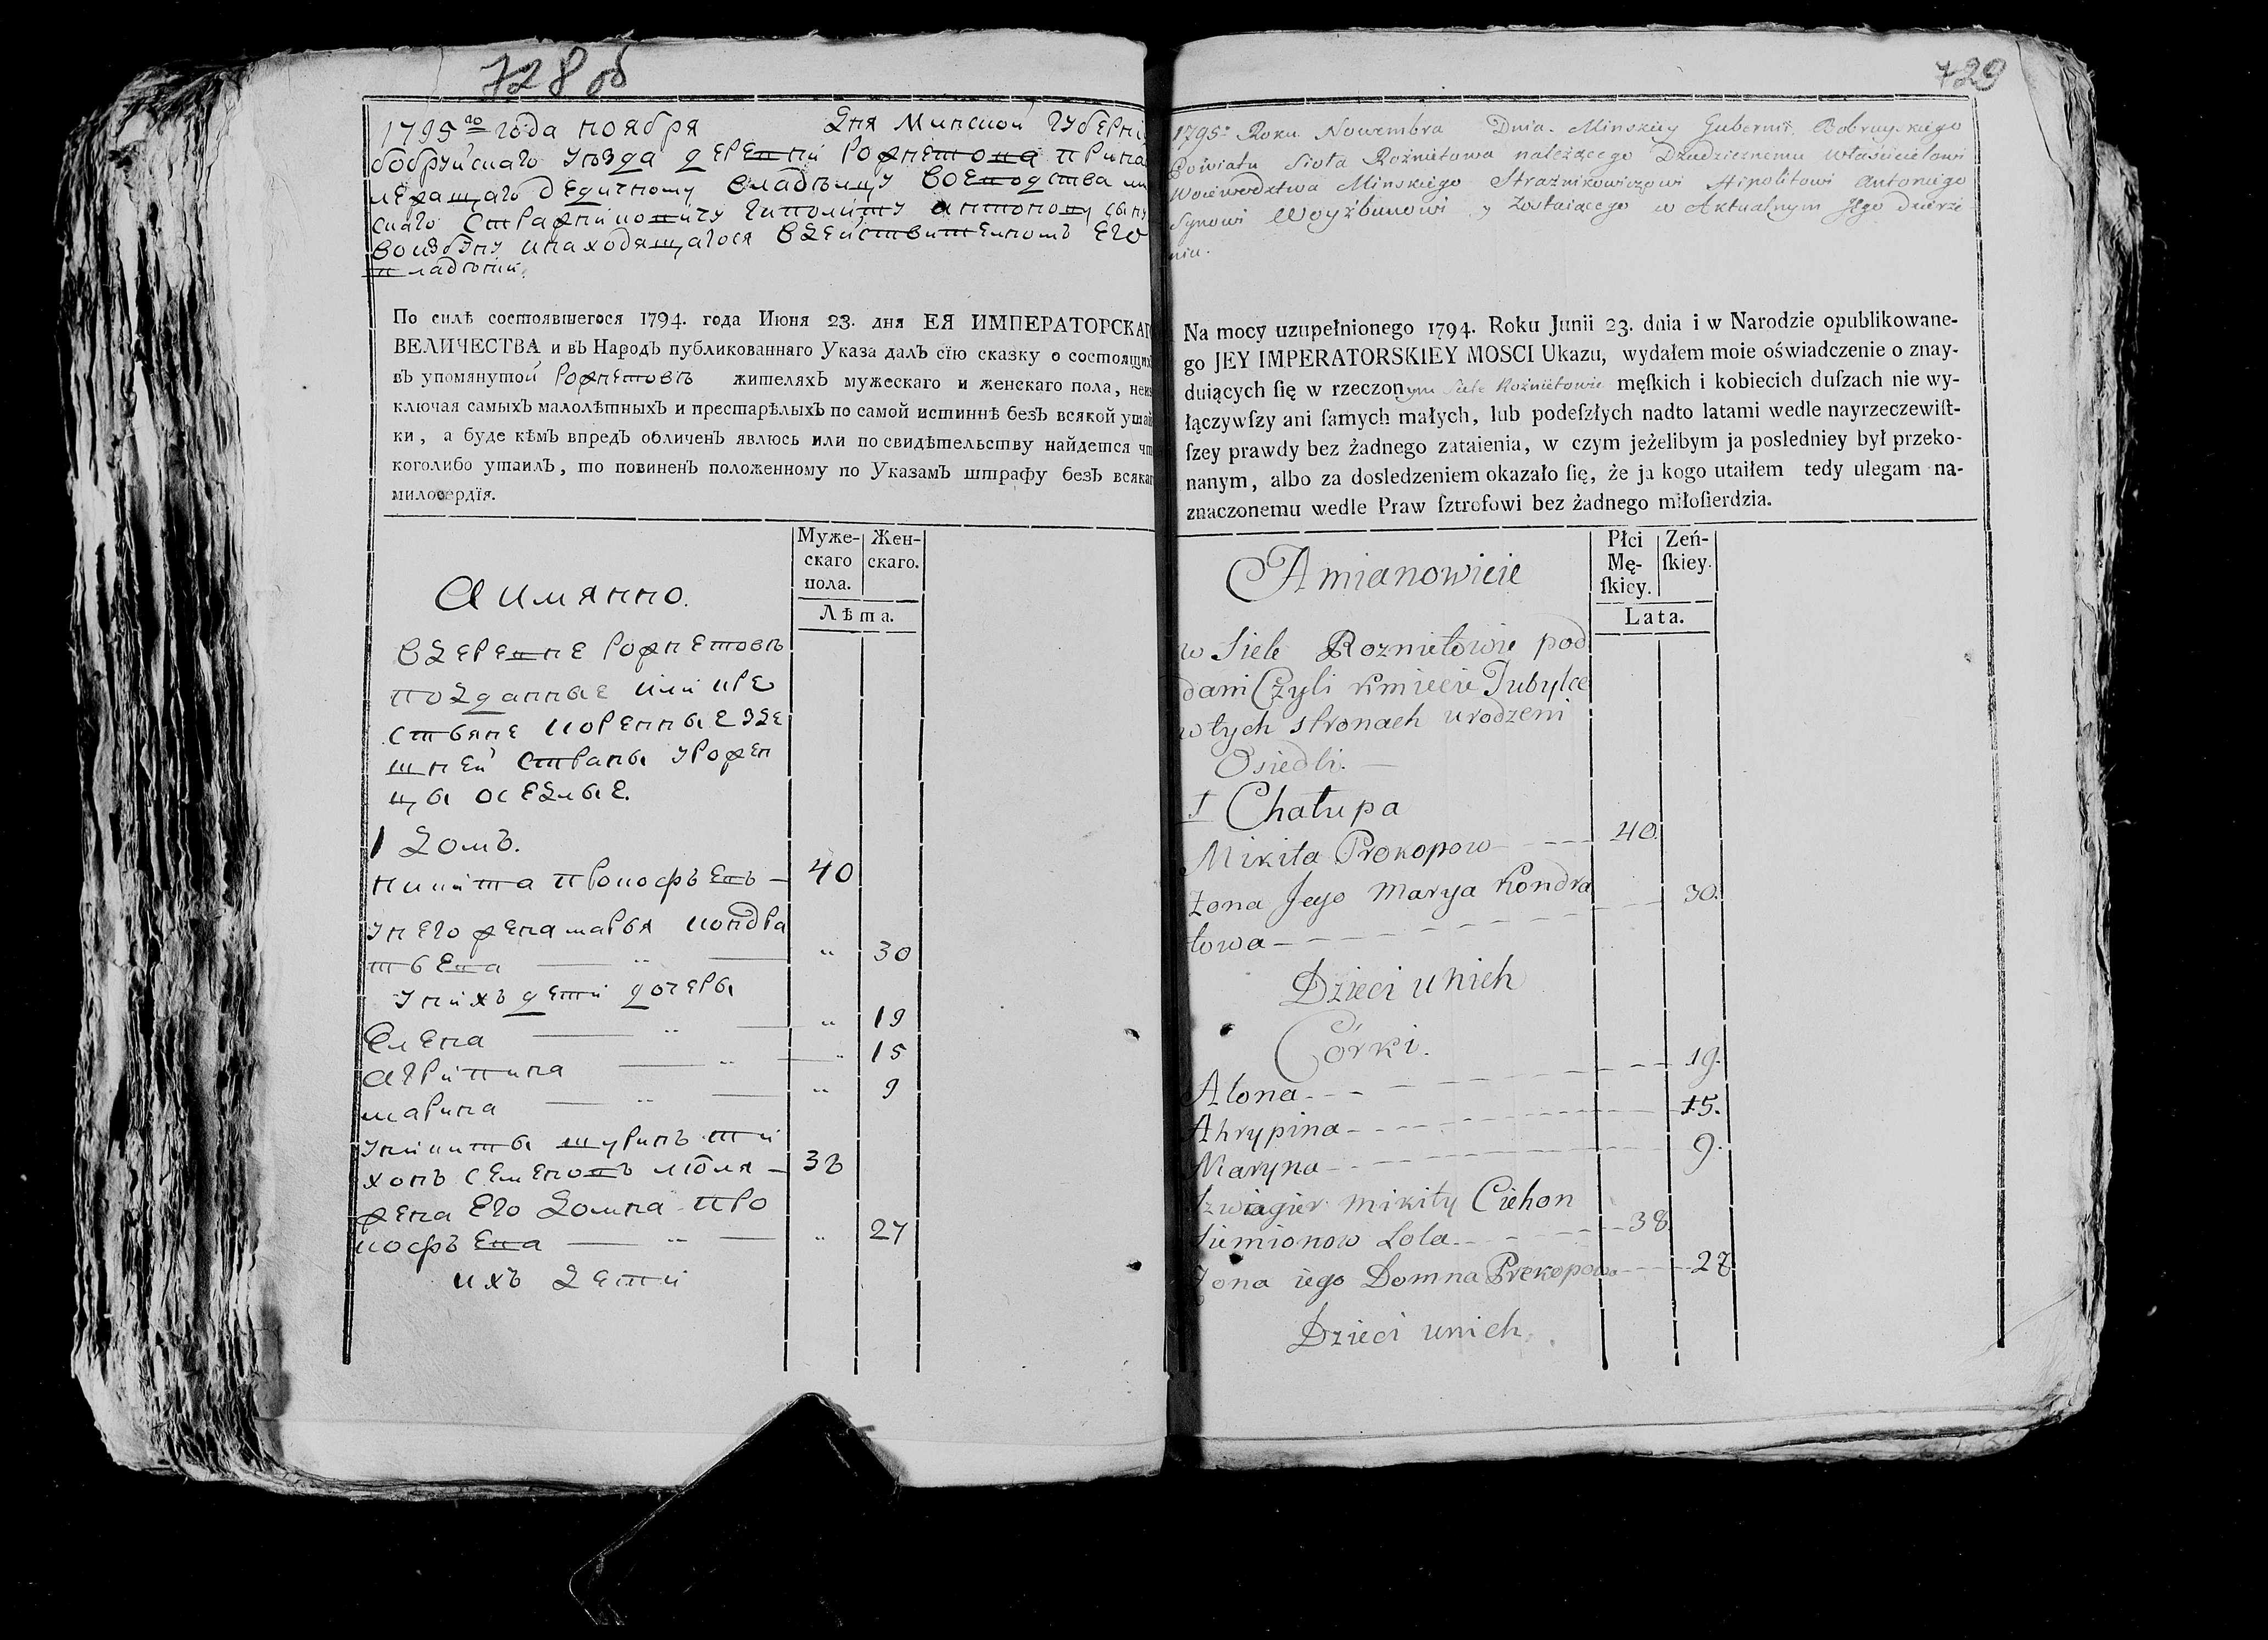 728 об
1795го года ноября дня Минской Губерніи
бобруйскаго уѣзда деревни Рожнетова прина
лежащаго дедичному владѣльцу военодства мин
скаго Стражниковичу Гиполиту антонову сыну
Воизбуну инаходящагося вдействителномъ Его
владѣнии.
По силѣ состоявшегося 1794. года Июня 23. дня ЕЯ ИМПЕРАТОРСКАГ
ВЕЛИЧЕСТВА и въ Народъ публикованнаго Указа далъ сїю сказку о состоящих
въ упомянутой Рожнетовѣ жителяхъ мужескаго и женскаго пола, неис
ключая самыхъ малолѣтныхъ и престарѣлыхъ по самой истиннѣ безъ всякой утай
ки, а буде кѣмъ впредъ обличенъ явлюсь или по свидѣтельству найдется чт
коголибо утаилъ, то повиненъ положенному по Указамъ штрафу безъ всякаг
милосердїя.
Муже-
скаго
пола.
Жен-
скаго.
Лѣта.
Аимянно.
вдеревне Рожнетовѣ
подданные или кре
стьяне коренные зде
шней страны урожен
цы оседлые.
1 домъ.
никита прокофьевъ — 40
унего жена марья кондра
тьевна — " — " 30
унихъ дети дочеры
Елена — " — " 19
агрипина — " — " 15
марина — " — " 9
уникиты шуринъ ти
хонъ семеновъ лобля — 38
жена Его домна про
кофьевна — " — " 27
ихъ дети
729
1795o Roku Nowembra Dnia. Minskiey Gubernii. Bobruyskiego
Powiatu Sioła Rożnietowa należącego Dziedzicznemu Właścicielowi
Woiewodztwa Minskiego Strażnikowiczowi Hipolitowi Antoniego
Synowi Woyżbunowi y zostaiącego w Aktualnym Jego dzierże
niu.
Na mocy uzupełnionego 1794. Roku Junii 23. dnia i w Narodzie opublikowane-
go JEY IMPERATORSKIEY MOSCI Ukazu, wydałem moie oświadczenie o znay-
duiących ſię w rzeczonym Siele Rożnietowie męſkich i kobiecich duſzach nie wy-
łączywſzy ani ſamych małych, lub podeſzłych nadto latami wedle nayrzeczewiſt-
ſzey prawdy bez żadnego zataienia, w czym jeżelibym ja posledniey był przeko-
nanym, albo za dosledzeniem okazało ſię, że ja kogo utaiłem tedy ulegam na-
znaczonemu wedle Praw ſztrofowi bez żadnego miłoſierdzia.
Płci
Mę-
ſkiey.
Zeń-
ſkiey.
Lata.
Amianowicie
w Siele Roznietowie pod
dani Czyli kmiecie Tubylce
w tych stronach urodzeni
Osiedli. —
I Chałupa
Mikita Prokopow - - - 40.
żona Jego Marya Kondra
towa - - - - - 30.
Dzieci u nich
Córki.
Alona - - - 19.
Ahrypina - - - 15.
Maryna - - - 9.
Szwagier Mikity Ciehon
Siemionow Lola - - - 38
żona iego Domna Prokopow - - - 27
Dzieci u nich.